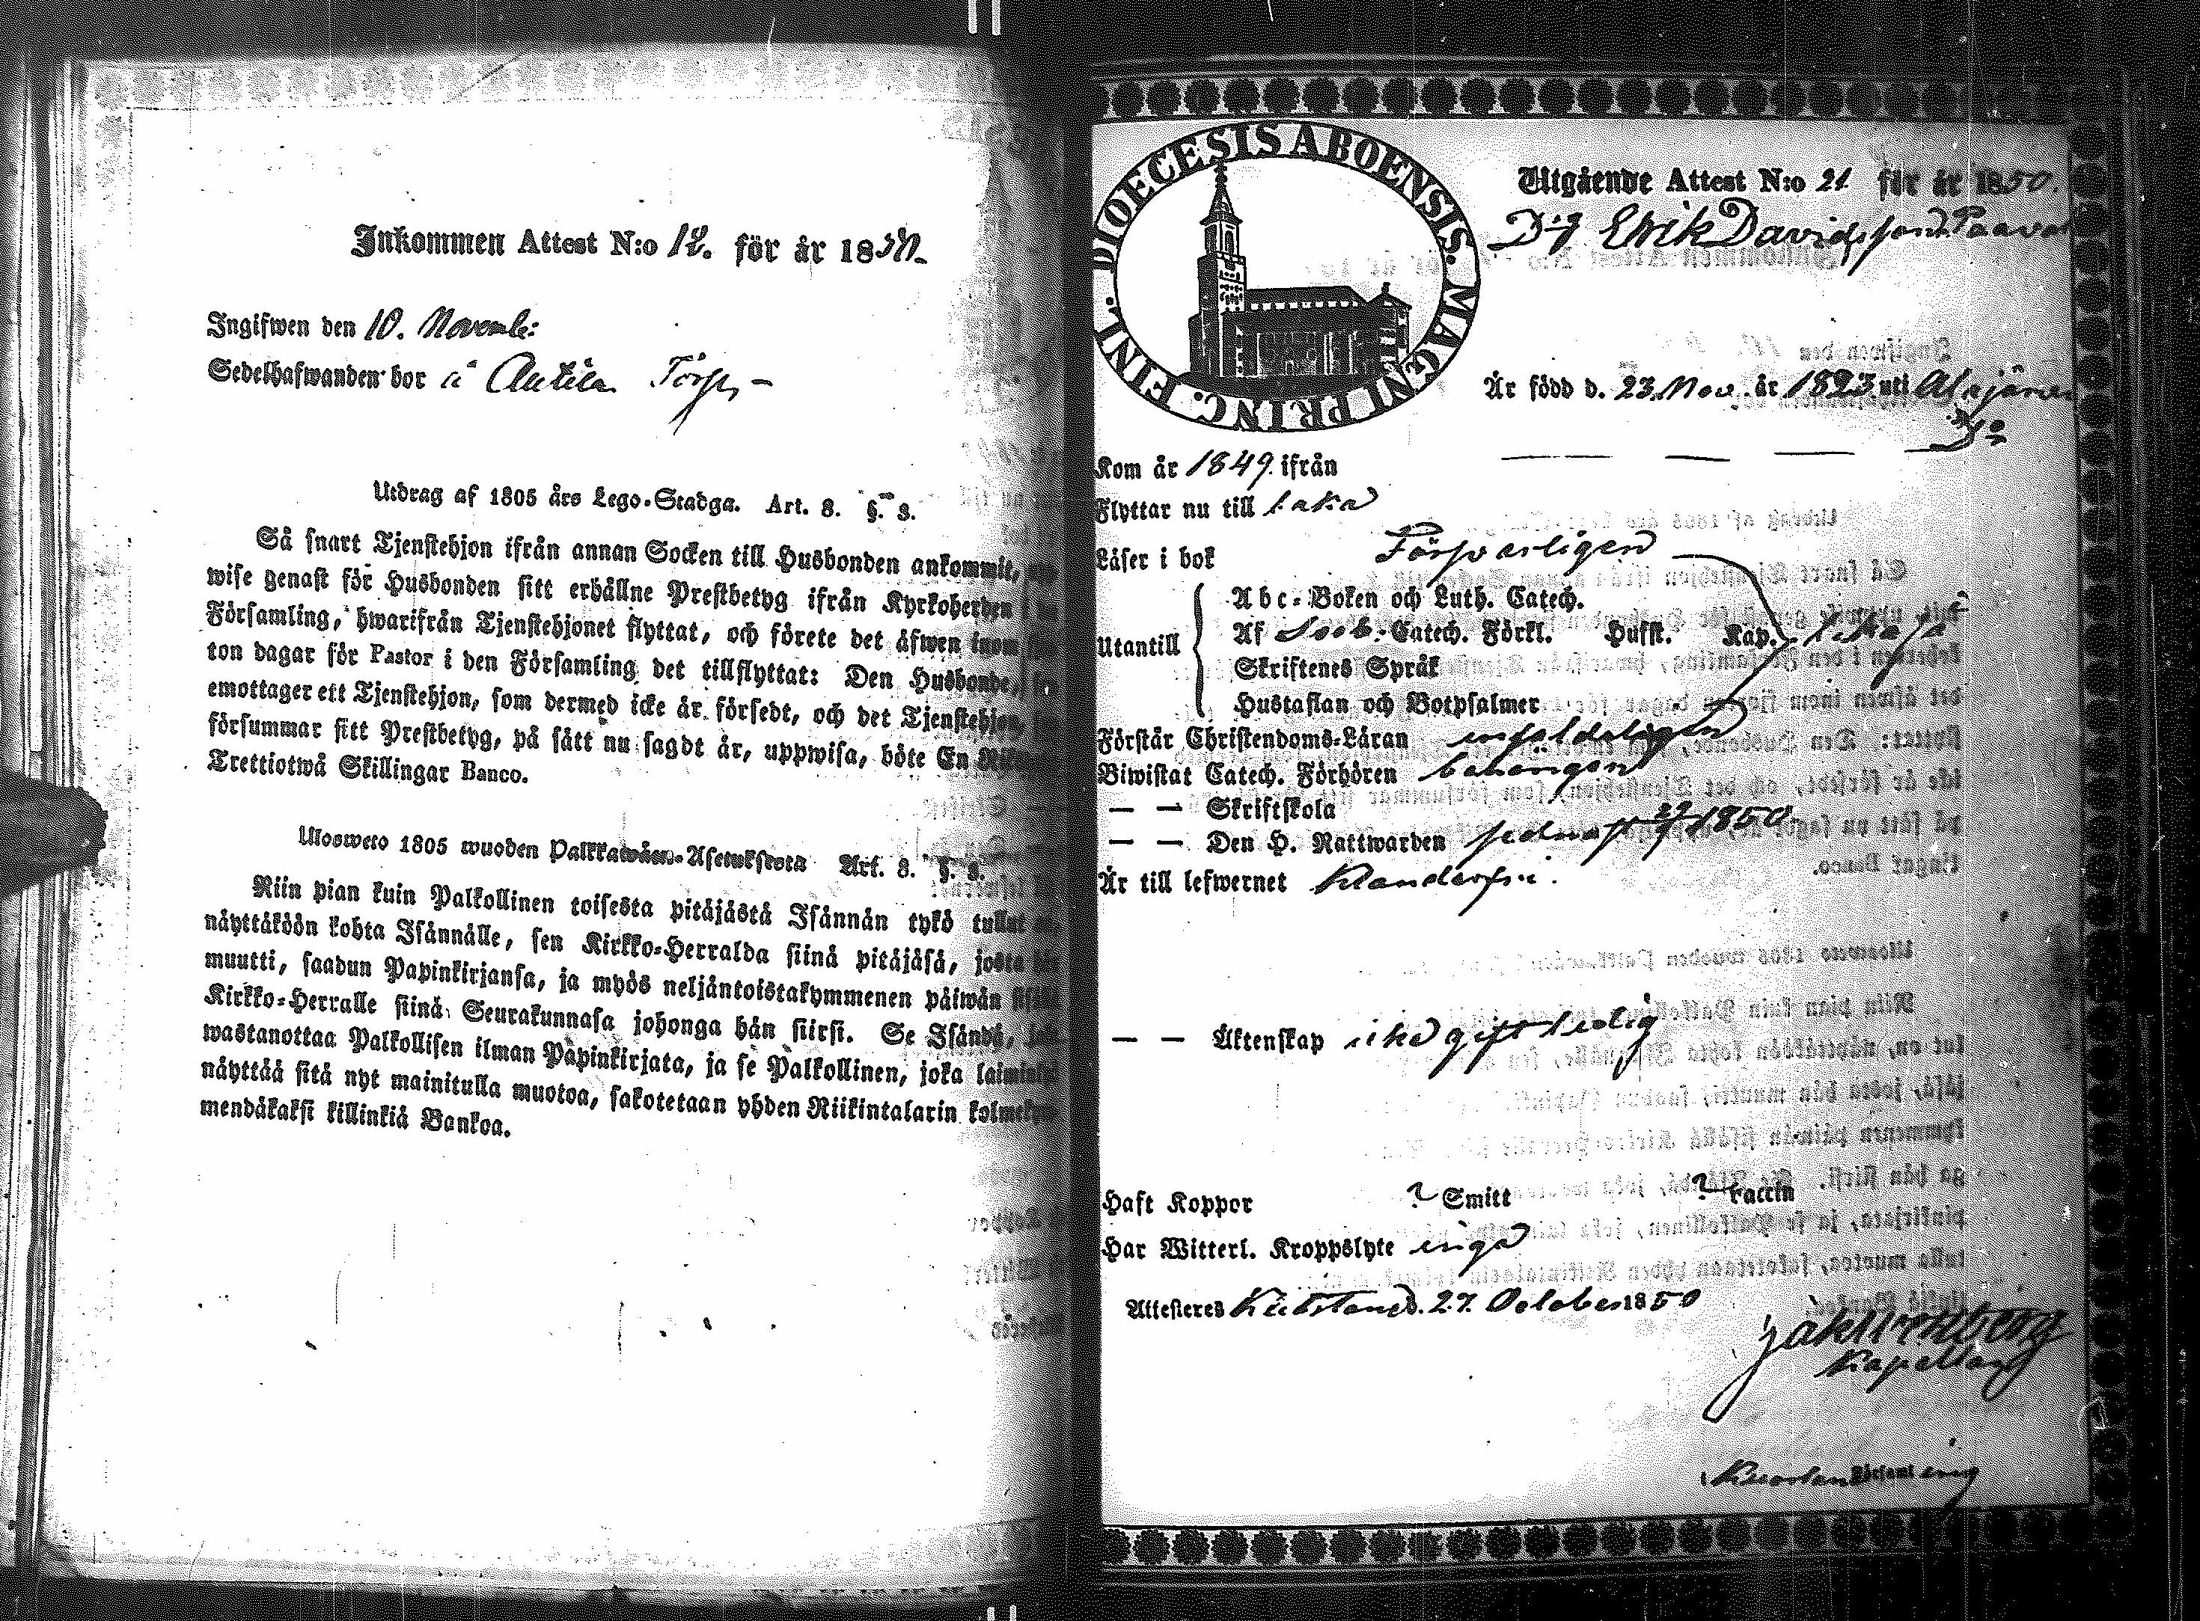 Inkommen Attest N:o 12. för år 1850.
Ingifwen den 10. Novemb:
Sedelhafwanden bor å Antila Torp
Utdrag af 1805 års Lego-Stadga. Art. 8. §. 3.
Så snart Tjenstehjon ifrån annan Socken till Husbonden ankommit,
wise genast för Husbonden sitt erhållne Prestbetyg ifrån Kyrkoherden i
Församling, hwarifrån Tjenstehjonet flyttat, och förete det äfwen inom
ton dagar för Pastor i den Församling det tillflyttat: Den Husbonde,
emottager ett Tjenstehjon, som dermed icke är försedt, och det Tjenstehjon,
försummar sitt Prestbetyg, på sätt nu sagdt är, uppwisa, böte En
Trettiotwå Skillingar Banco.
Ulosweto 1805 wuoden Palkkawäen-Asetuksesta Art. 8. §. 3.
Niin pian kuin Palkollinen toisesta pitäjästä Isännän tykö tullut
näyttäköön kohta Isännälle, sen Kirkko-Herralda siinä pitäjäsä, josta
muutti, saadun Papinkirjansa, ja myös neljäntoistakymmenen päiwän
Kirkko-Herralle siinä Seurakunnasa johonga hän siirsi. Se Isändä,
wastanottaa Palkollisen ilman Papinkirjata, ja se Palkollinen, joka
näyttää sitä nyt mainitulla muotoa, sakotetaan yhden Riikintalarin
mendäkaksi killinkiä Bankoa.
DIOECESIS ABOENSIS. MAGNI PRINC. FINL.
Utgående Attest N:o 21 för år 1850.
Dg Erik Davidsson
Är född d. 23 Nov. år 1823 uti Alajärvi
Kom år 1849 ifrån D:o
Flyttar nu till
Läser i bok Försvarligen
Abc-Boken och Luth. Catech.
Utantill Af Catech. Förkl. Hufst. Kap.
Skriftenes Språk
Hustaflan och Botpsalmer
Förstår Christendoms-Läran enfaldeligen
Biwistat Catech. Förhören behörigen
— — Skriftskola
— — Den H. Nattwarden sednast 1850
Är till lefwernet klanderfri.
— — Äktenskap icke gift ledig
Haft Koppor ? Smitt ? Vaccin
Har Witterl. Kroppslyte inga
Attesteres d. 27. October 1850
Kapellan
Kuortane Församling